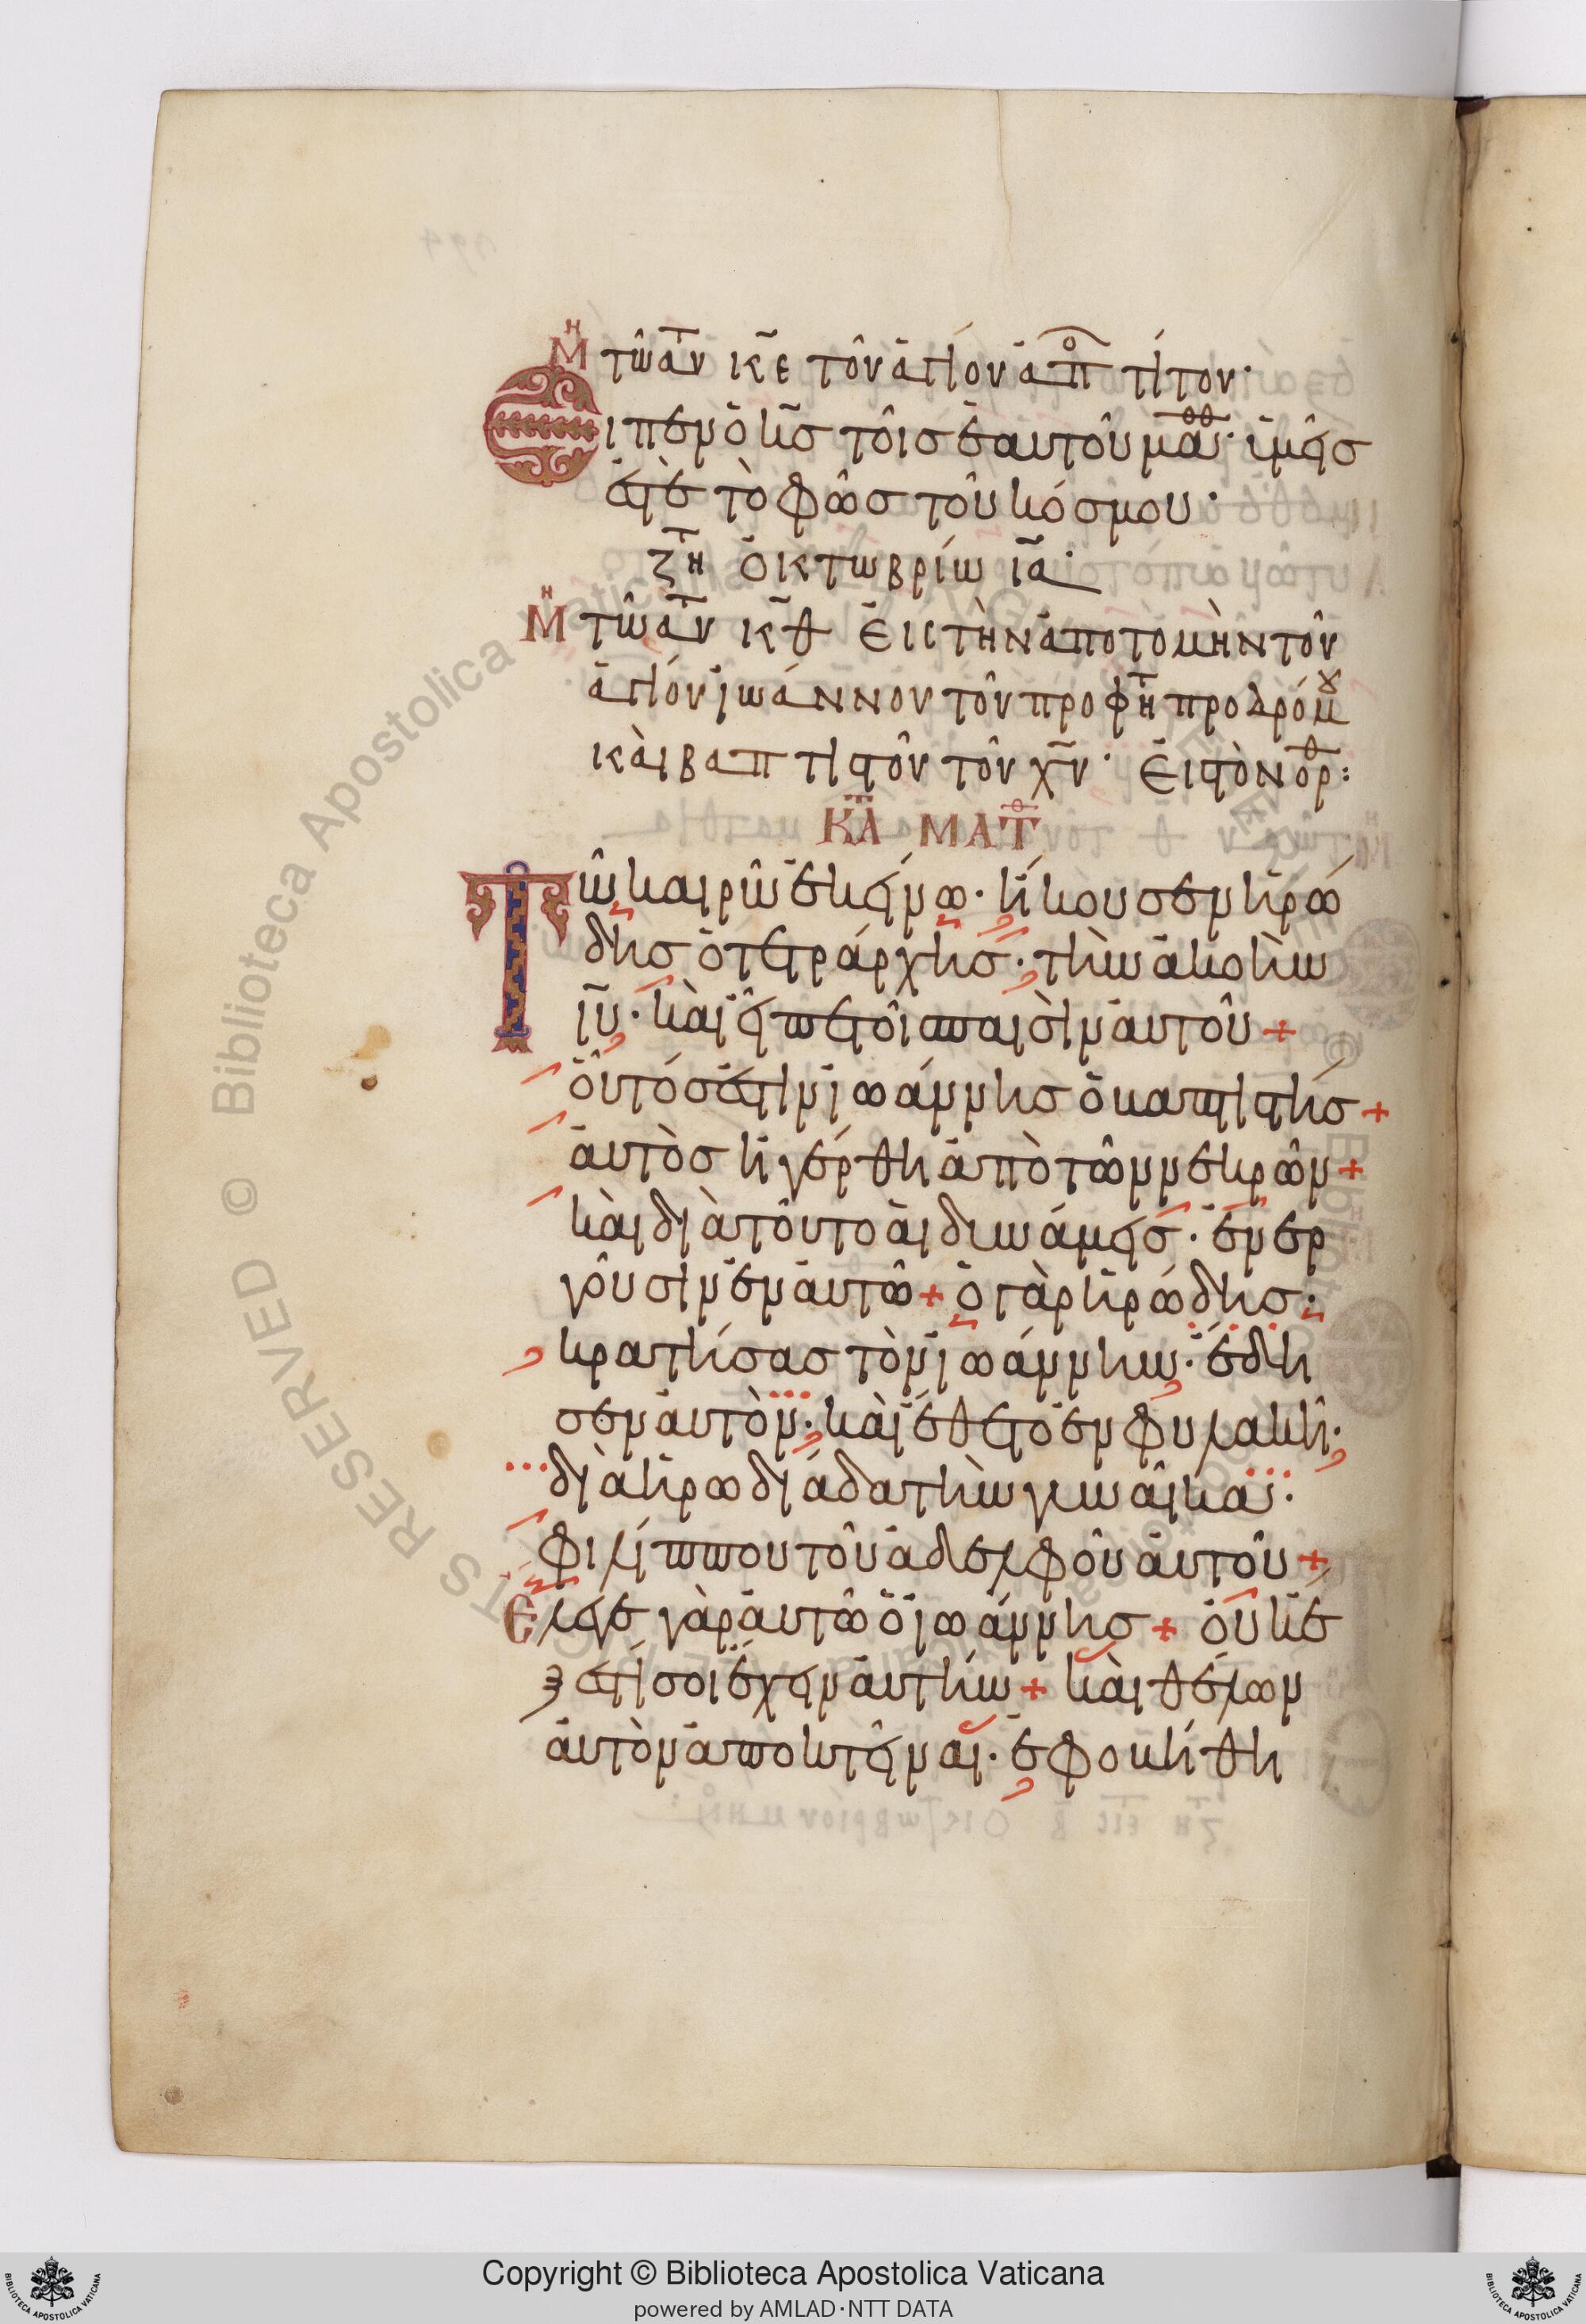 Μη τῶ αὐτ κε τοῦ ἁγίου ἀποπ τίτου·
Εἶπεν ὁ κς τοῖς ἑαυτοῦ μαθθ· ὑμεῖς
ἐστὲ τὸ φῶς τοῦ κόσμου·
ζητ ὀκτωβρίω ια·
Μη τῶ αὐτ κθ Εἰς τὴν ἀποτομὴν τοῦ
ἁγίου ἰωάννου τοῦ προφητ προδρόμου
καὶ βαπτιστοῦ τοῦ χυ· Εἰς τὸν ὄρθ:
ΚΑ ΜΑΤΘ
Τῶ καιρῶ ἐκείνω· ἤκουσεν ἡρώ
δης ὁ τετράρχης· τὴν ἀκοὴν
ιυ· καὶ εἶπε τοῖς παισὶν αὐτοῦ +
οὗτός ἐστιν ἰωάννης ὁ βαπτιστής +
αὐτὸς ἠγέρθη ἀπὸ τῶν νεκρῶν +
καὶ διὰ τοῦτο αἱ δυνάμεις· ἐνερ
γοῦσιν ἐν αὐτῶ + ὁ γὰρ ἡρώδης·
κρατήσας τὸν ἰωάννην· ἔδη
σεν αὐτὸν· καὶ ἔθετο ἐν φυλακῆ·
διὰ ἡρωδιάδα τὴν γυναῖκα·
φιλίππου τοῦ ἀδελφοῦ αὐτοῦ +
Ἔλεγε γὰρ αὐτῶ ὁ ἰωάννης + οὐκ ἔ
ξεστί σοι ἔχειν αὐτήν + καὶ θέλων
αὐτὸν ἀποκτεῖναι· ἐφοβήθη
Copyright © Biblioteca Apostolica Vaticana
powered by AMLAD·NTT DATA